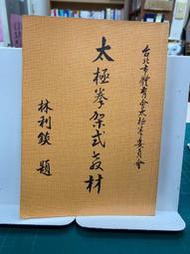 台北市體育會太極拳委員會
太極拳架式教材
林利鋑 題